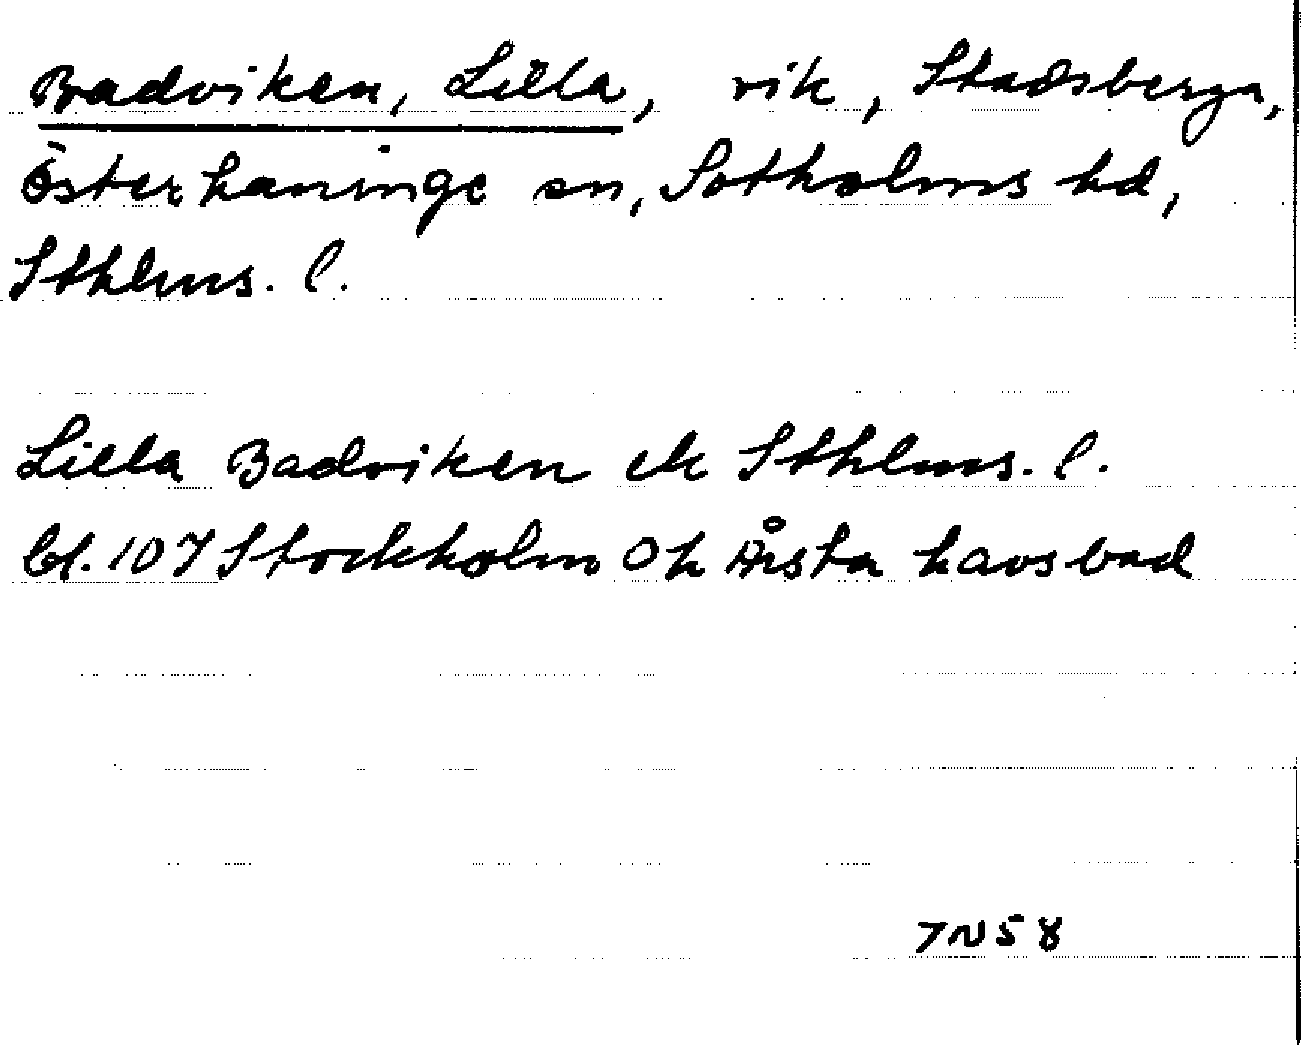 Badviken, Lilla, vik, Stadsberga,
Österhaninge sn, Sotholms hd,
Sthlms. l.
Lilla Badviken ek Sthlms. l.
bl. 107 Stockholm Ok Årsta havsbad
7N58